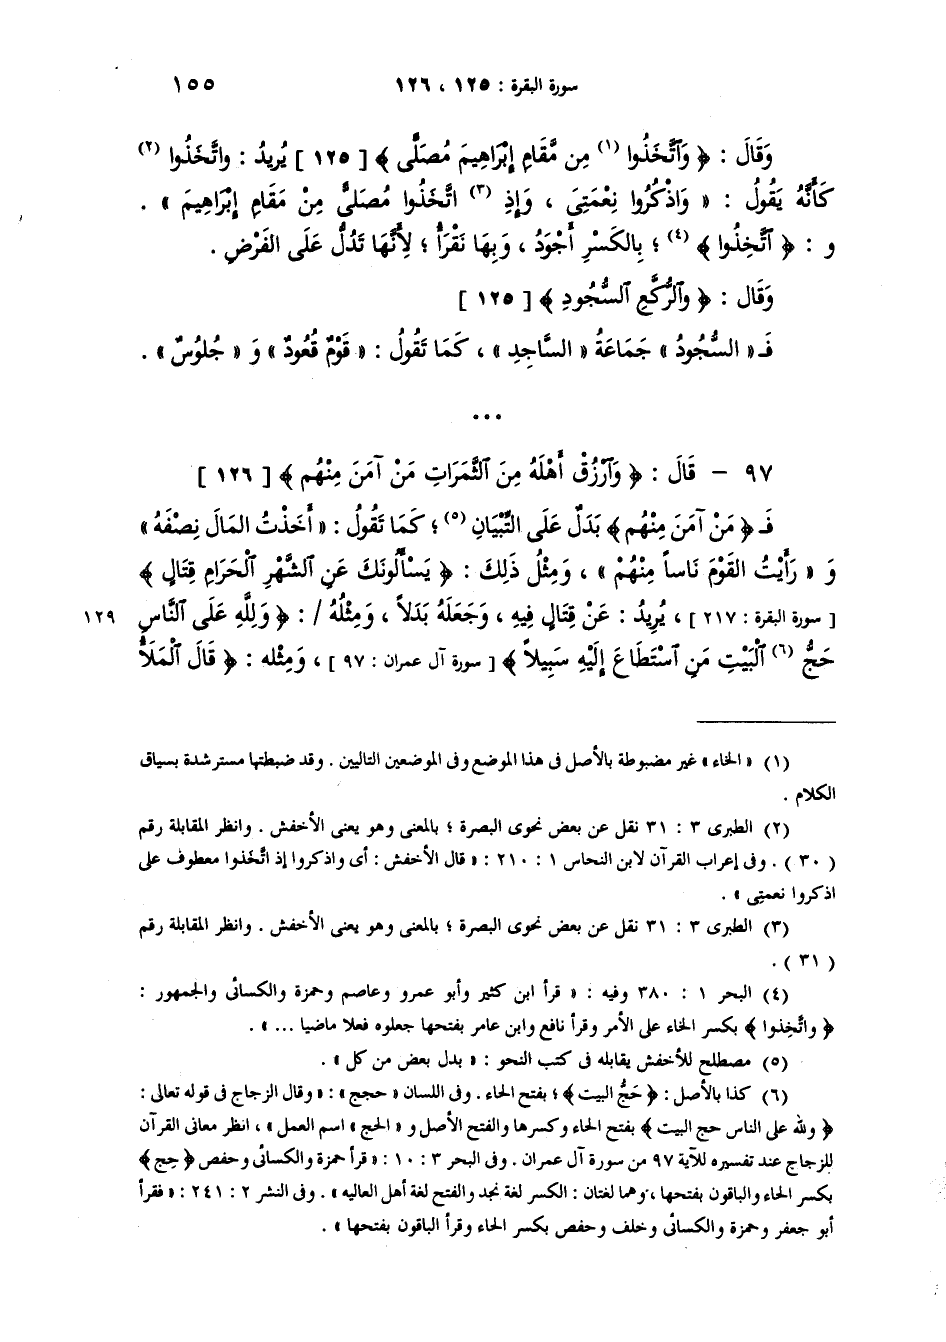 سورة البقرة : ١٢٥ ، ١٢٦ ١٥٥
وَقَالَ : ﴿ وَٱتَّخَذُوا (١) مِن مَّقَامِ إِبْرَاهِيمَ مُصَلًّى ﴾ [ ١٢٥ ] يُرِيدُ : واتَّخَذُوا (٢)
كَأَنَّهُ يَقُولُ : « وَاذْكُرُوا نِعْمَتِىَ ، وَإِذِ (٣) اتَّخَذُوا مُصَلىًّ مِنْ مَقَامِ إِبْرَاهِيمَ » .
و : ﴿ ٱتَّخِذُوا ﴾ (٤) ؛ بِالكَسْرِ أَجْوَدُ ، وَبِهَا نَقْرَأُ ؛ لِأَنَّهَا تَدُلُّ عَلَى الفَرْضِ .
وَقَال : ﴿ وَٱلرُّكَّعِ ٱلسُّجُودِ ﴾ [ ١٢٥ ]
فَـ « السُّجُودُ » جَمَاعَةُ « السَّاجِدِ » ، كَمَا تَقُولُ : « قَوْمٌ قُعُودٌ » وَ « جُلوُسٌ » .
...
٩٧ – قَالَ : ﴿ وَٱرْزُقْ أَهْلَهُ مِنَ ٱلثَّمَرَاتِ مَنْ آمَنَ مِنْهُم ﴾ [ ١٢٦ ]
فَـ ﴿ مَنْ آمَنَ مِنْهُم ﴾ بَدَلٌ عَلَى التِّبْيَانِ (٥) ؛ كَمَا تَقُولُ : « أَخَذْتُ المَالَ نِصْفَهُ »
وَ « رَأَيْتُ القَوْمَ نَاساً مِنْهُمْ » ، وَمِثْلُ ذَلِكَ : ﴿ يَسْأَلُونَكَ عَنِ ٱلشَّهْرِ ٱلْحَرَامِ قِتَالٍ ﴾
[ سورة البقرة : ٢١٧ ] ، يُرِيدُ : عَنْ قِتَالٍ فِيهِ ، وَجَعَلَهُ بَدَلاً ، وَمِثْلُهُ / : ﴿ وَلِلَّهِ عَلَى ٱلنَّاسِ ١٢٩
حَجُّ (٦) ٱلْبَيْتِ مَنِ ٱسْتَطَاعَ إِلَيْهِ سَبِيلاً ﴾ [ سورة آل عمران : ٩٧ ] ، وَمِثله : ﴿ قَالَ ٱلْمَلَأُ
(١) « الخاء » غير مضبوطة بالأصل فى هذا الموضع وفى الموضعين التاليين . وقد ضبطتها مسترشدة بسياق
الكلام .
(٢) الطبرى ٣ : ٣١ نقل عن بعض نحوى البصرة ؛ بالمعنى وهو يعنى الأخفش . وانظر المقابلة رقم
( ٣٠ ) . وفى إعراب القرآن لابن النحاس ١ : ٢١٠ : « قال الأخفش : أى واذكروا إذ اتَّخَذوا معطوف على
اذكروا نعمتِى » .
(٣) الطبرى ٣ : ٣١ نقل عن بعض نحوى البصرة ؛ بالمعنى وهو يعنى الأخفش . وانظر المقابلة رقم
( ٣١ ) .
(٤) البحر ١ : ٣٨٠ وفيه : « قرأ ابن كثير وأبو عمرو وعاصم وحمزة والكسائى والجمهور :
﴿ واتَّخِذوا ﴾ بكسر الخاء على الأمر وقرأ نافع وابن عامر بفتحها جعلوه فعلا ماضيا ... » .
(٥) مصطلح للأخفش يقابله فى كتب النحو : « بدل بعض من كل » .
(٦) كذا بالأصل : ﴿ حَجُّ البيت ﴾ ؛ بفتح الحاء . وفى اللسان « حجج » : « وقال الزجاج فى قوله تعالى :
﴿ ولله على الناس حج البيت ﴾ بفتح الحاء وكسرها والفتح الأصل و « الحج » اسم العمل » ، انظر معانى القرآن
للزجاج عند تفسيره للآية ٩٧ من سورة آل عمران . وفى البحر ٣ : ١٠ : « قرأ حمزة والكسائى وحفص ﴿ حِج ﴾
بكسر الحاء والباقون بفتحها ، وهما لغتان : الكسر لغة نجد والفتح لغة أهل العاليه » . وفى النشر ٢ : ٢٤١ : « فقرأ
أبو جعفر وحمزة والكسائى وخلف وحفص بكسر الحاء وقرأ الباقون بفتحها » .